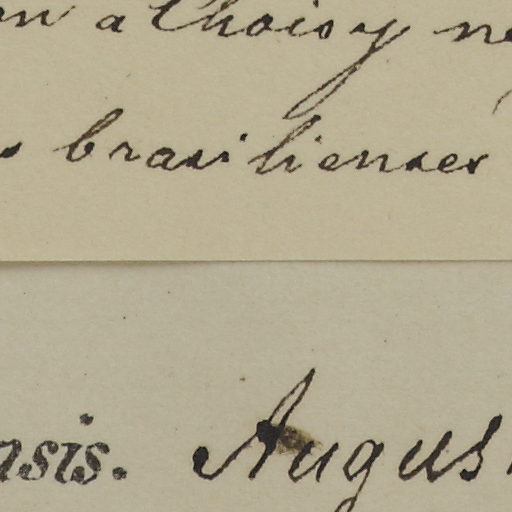 a Choisy
brasilienses
nsis. Augus